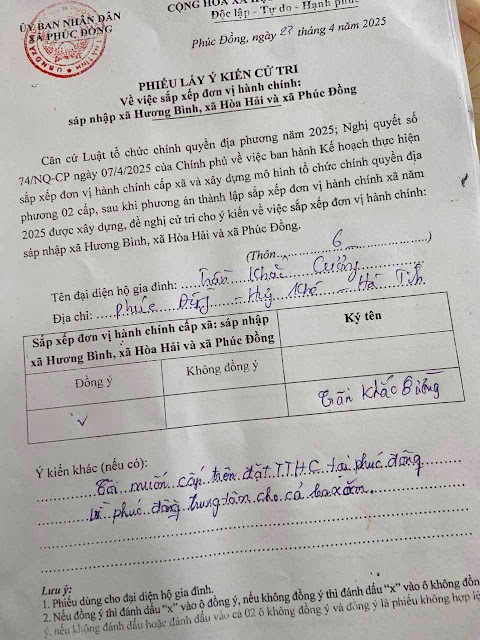 ỦY BAN NHÂN DÂN
XÃ PHÚC ĐỒNG
CỘNG HÒA XÃ
Độc lập - Tự do - Hạnh phúc
Phúc Đồng, ngày 27 tháng 4 năm 2025
PHIẾU LẤY Ý KIẾN CỬ TRI
Về việc sắp xếp đơn vị hành chính:
sáp nhập xã Hương Bình, xã Hòa Hải và xã Phúc Đồng
Căn cứ Luật tổ chức chính quyền địa phương năm 2025; Nghị quyết số
74/NQ-CP ngày 07/4/2025 của Chính phủ về việc ban hành Kế hoạch thực hiện
sắp xếp đơn vị hành chính cấp xã và xây dựng mô hình tổ chức chính quyền địa
phương 02 cấp, sau khi phương án thành lập sắp xếp đơn vị hành chính xã năm
2025 được xây dựng, đề nghị cử tri cho ý kiến về việc sắp xếp đơn vị hành chính:
sáp nhập xã Hương Bình, xã Hòa Hải và xã Phúc Đồng.
(Thôn 6)
Tên đại diện hộ gia đình: Trần Khắc Cường
Địa chỉ: Phúc Đồng - Hg Khê - Hà Tĩnh
Sắp xếp đơn vị hành chính cấp xã: sáp nhập
xã Hương Bình, xã Hòa Hải và xã Phúc Đồng
Ký tên
Đồng ý
Không đồng ý
Trần Khắc
Ý kiến khác (nếu có):
Tôi muốn cấp trên đặt TTHC tại phúc đồng
vì phúc đồng trung tâm cho cả ba xã
Lưu ý:
1. Phiếu dùng cho đại diện hộ gia đình.
2. Nếu đồng ý thì đánh dấu “x” vào ô đồng ý, nếu không đồng ý thì đánh dấu “x” vào ô không đồn
ý, nếu không đánh dấu hoặc đánh dấu vào cả 02 ô không đồng ý và đồng ý là phiếu không hợp lệ